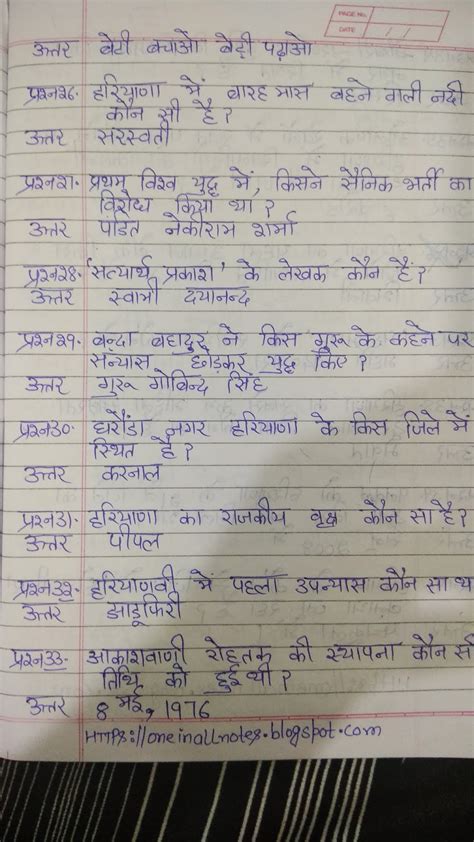 PAGE No.
DATE / /
उत्तर बेटी बचाओ बेटी पढ़ाओ
प्रश्न२६. हरियाणा में बारह मास बहने वाली नदी
कौन सी है?
उत्तर सरस्वती
प्रश्न२७. प्रथम विश्व युद्ध में, किसने सैनिक भर्ती का
विरोध किया था?
उत्तर पंडित नेकीराम शर्मा
प्रश्न२8. 'सत्यार्थ प्रकाश' के लेखक कौन हैं?
उत्तर स्वामी दयानन्द
प्रश्न२९. बन्दा बहादुर ने किस गुरू के कहने पर
सन्यास छोड़कर युद्ध किए?
उत्तर गुरू गोविन्द सिंह
प्रश्न३०. घरौंडा नगर हरियाणा के किस जिले में
स्थित है?
उत्तर करनाल
प्रश्न३1. हरियाणा का राजकीय वृक्ष कौन सा है?
उत्तर पीपल
प्रश्न३२. हरियाणवी में पहला उपन्यास कौन सा थ
उत्तर झाडूफिरी
प्रश्न३३. आकाशवाणी रोहतक की स्थापना कौन सी
तिथि को हुई थी?
उत्तर 8 मई, 1976
HTTPS://oneinallnotes.blogspot.com